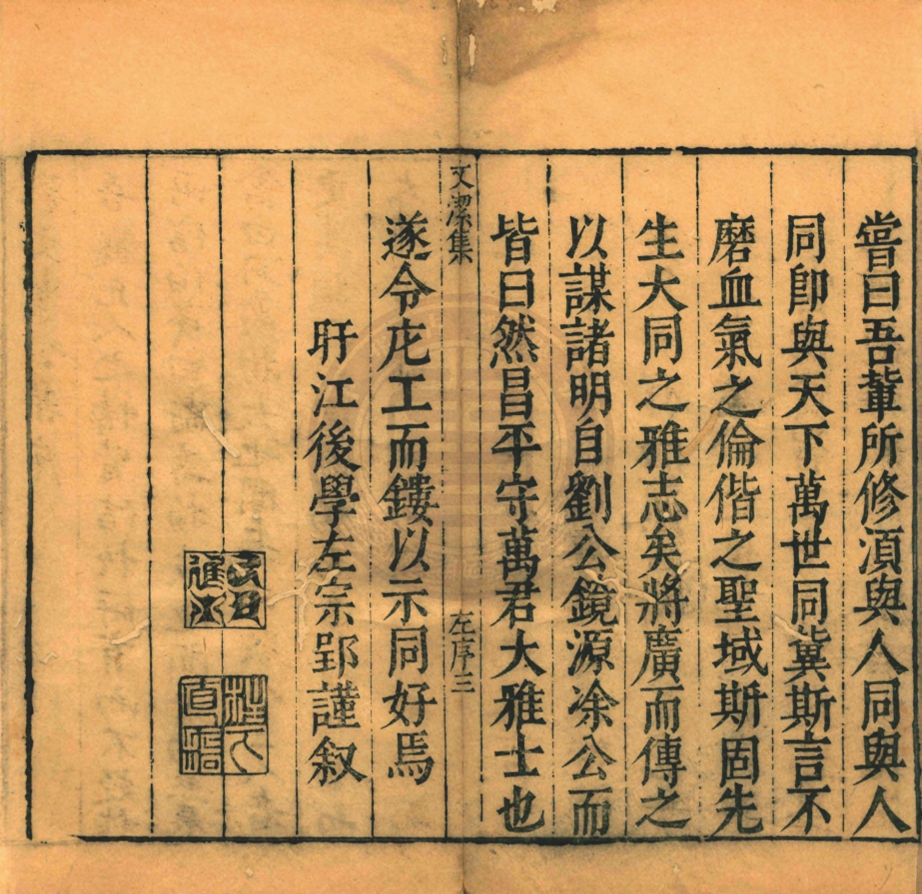 嘗曰吾軰所修湏與人同與人
同卽與天下萬世同冀斯言不
磨血氣之倫偕之聖域斯固先
生大同之雅志矣將廣而傳之
以謀諸明自劉公鏡源凃公而
皆曰然昌平守萬君大雅士也
文潔集
左序三
遂令庀工而鏤以示同好焉
盱江後學左宗郢謹叙